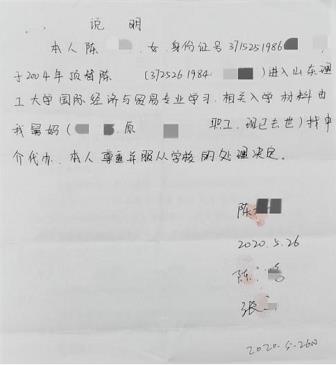 说 明
本人陈 ,女,身份证号3715251986 ,
于2004年顶替陈 (372526 1984 )进入山东理
工大学国际经济与贸易专业学习,相关入学材料由
我舅妈( ,原 职工,现已去世)找中
介代办。本人尊重并服从学校的处理决定。
陈
2020.5.26
陈
张
2020.5.26